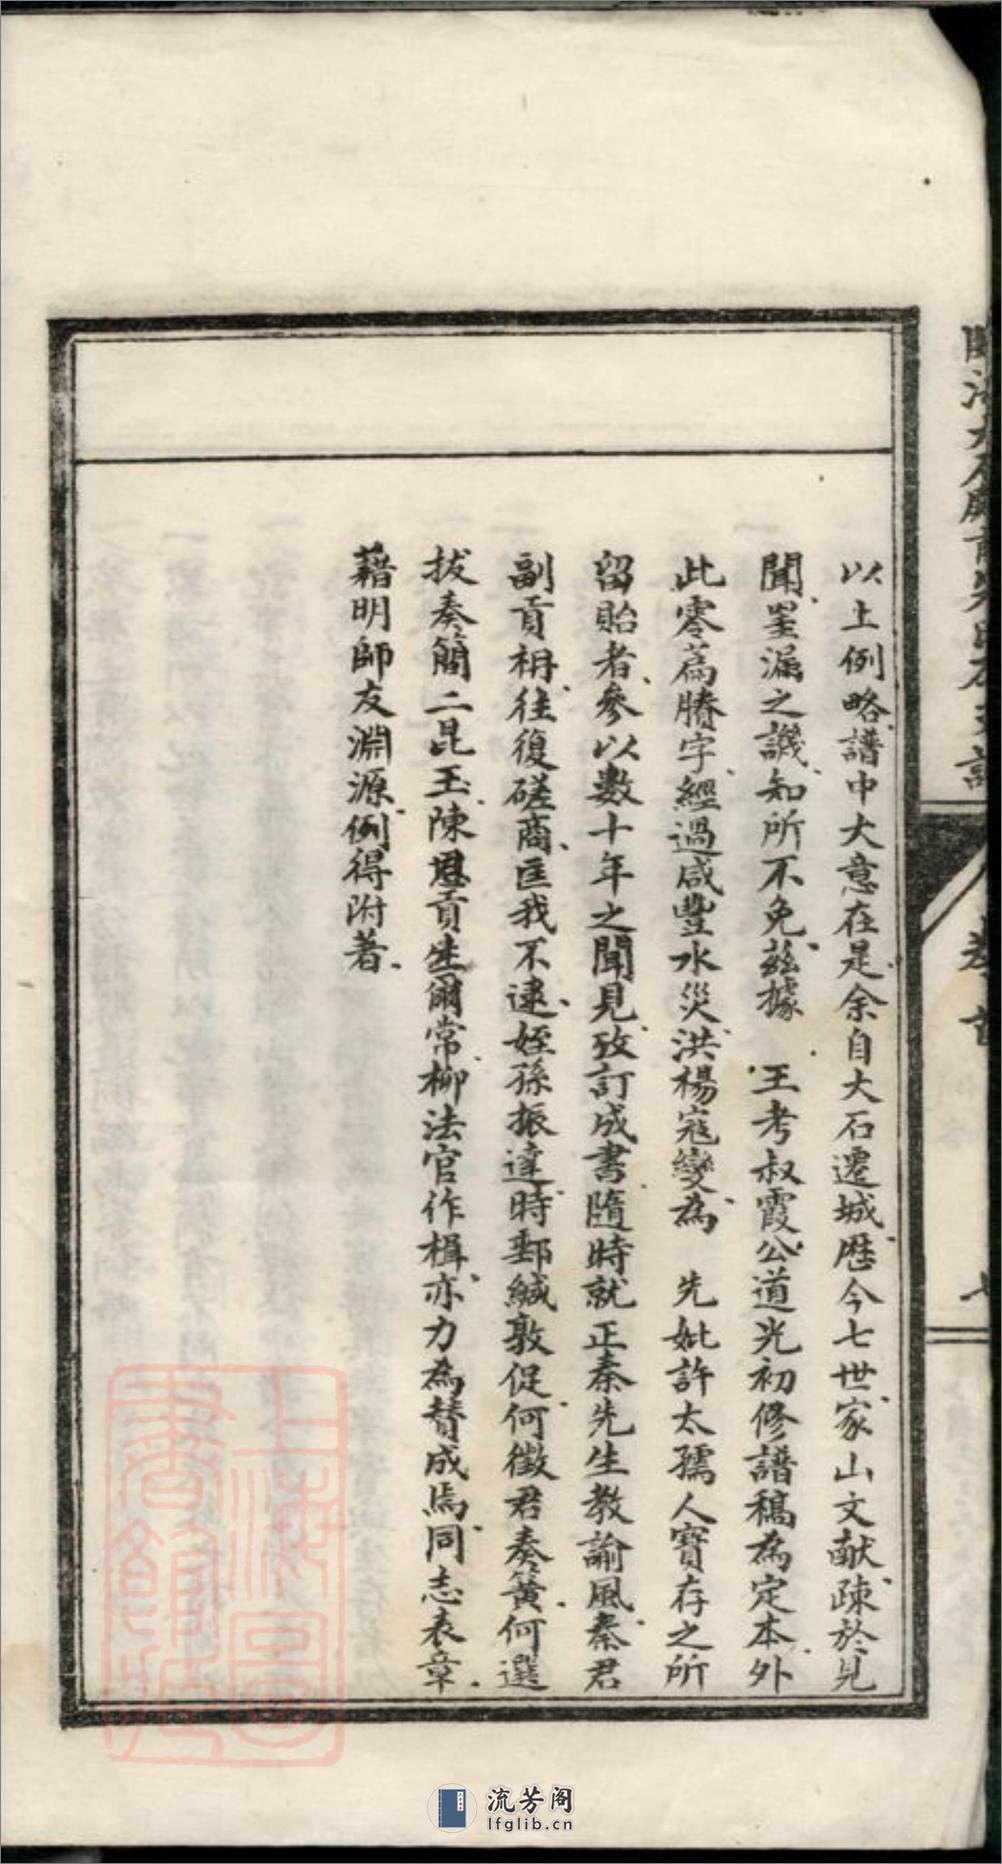 以上例略譜中大意在是余自大石遷城歴今七世家山文献疎於見
聞罣漏之譏知所不免兹據 王考叔霞公道光初修譜稿為定本外
此零蔿賸字經過咸豐水災洪楊寇變為 先妣許太孺人寶存之所
留貽者參以數十年之聞見攷訂成書隨時就正秦先生教諭風秦君
副貢枏往復磋商匡我不逮姪孫振達時郵緘敦促何徵君奏簧何選
拔奏簡二昆玉陳恩貢生爾常柳法官作楫亦力為賛成焉同志表章
藉明師友淵源例得附著
上海圖
書館藏
流芳阁
lfglib.cn